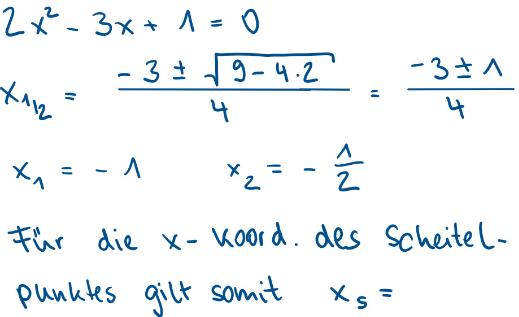 2x² - 3x + 1 = 0
x₁/₂ = (-3 ± √(9 - 4·2))/4 = (-3 ± 1)/4
x₁ = -1 x₂ = -1/2
Für die x-Koord. des Scheitel-
punktes gilt somit xₛ =